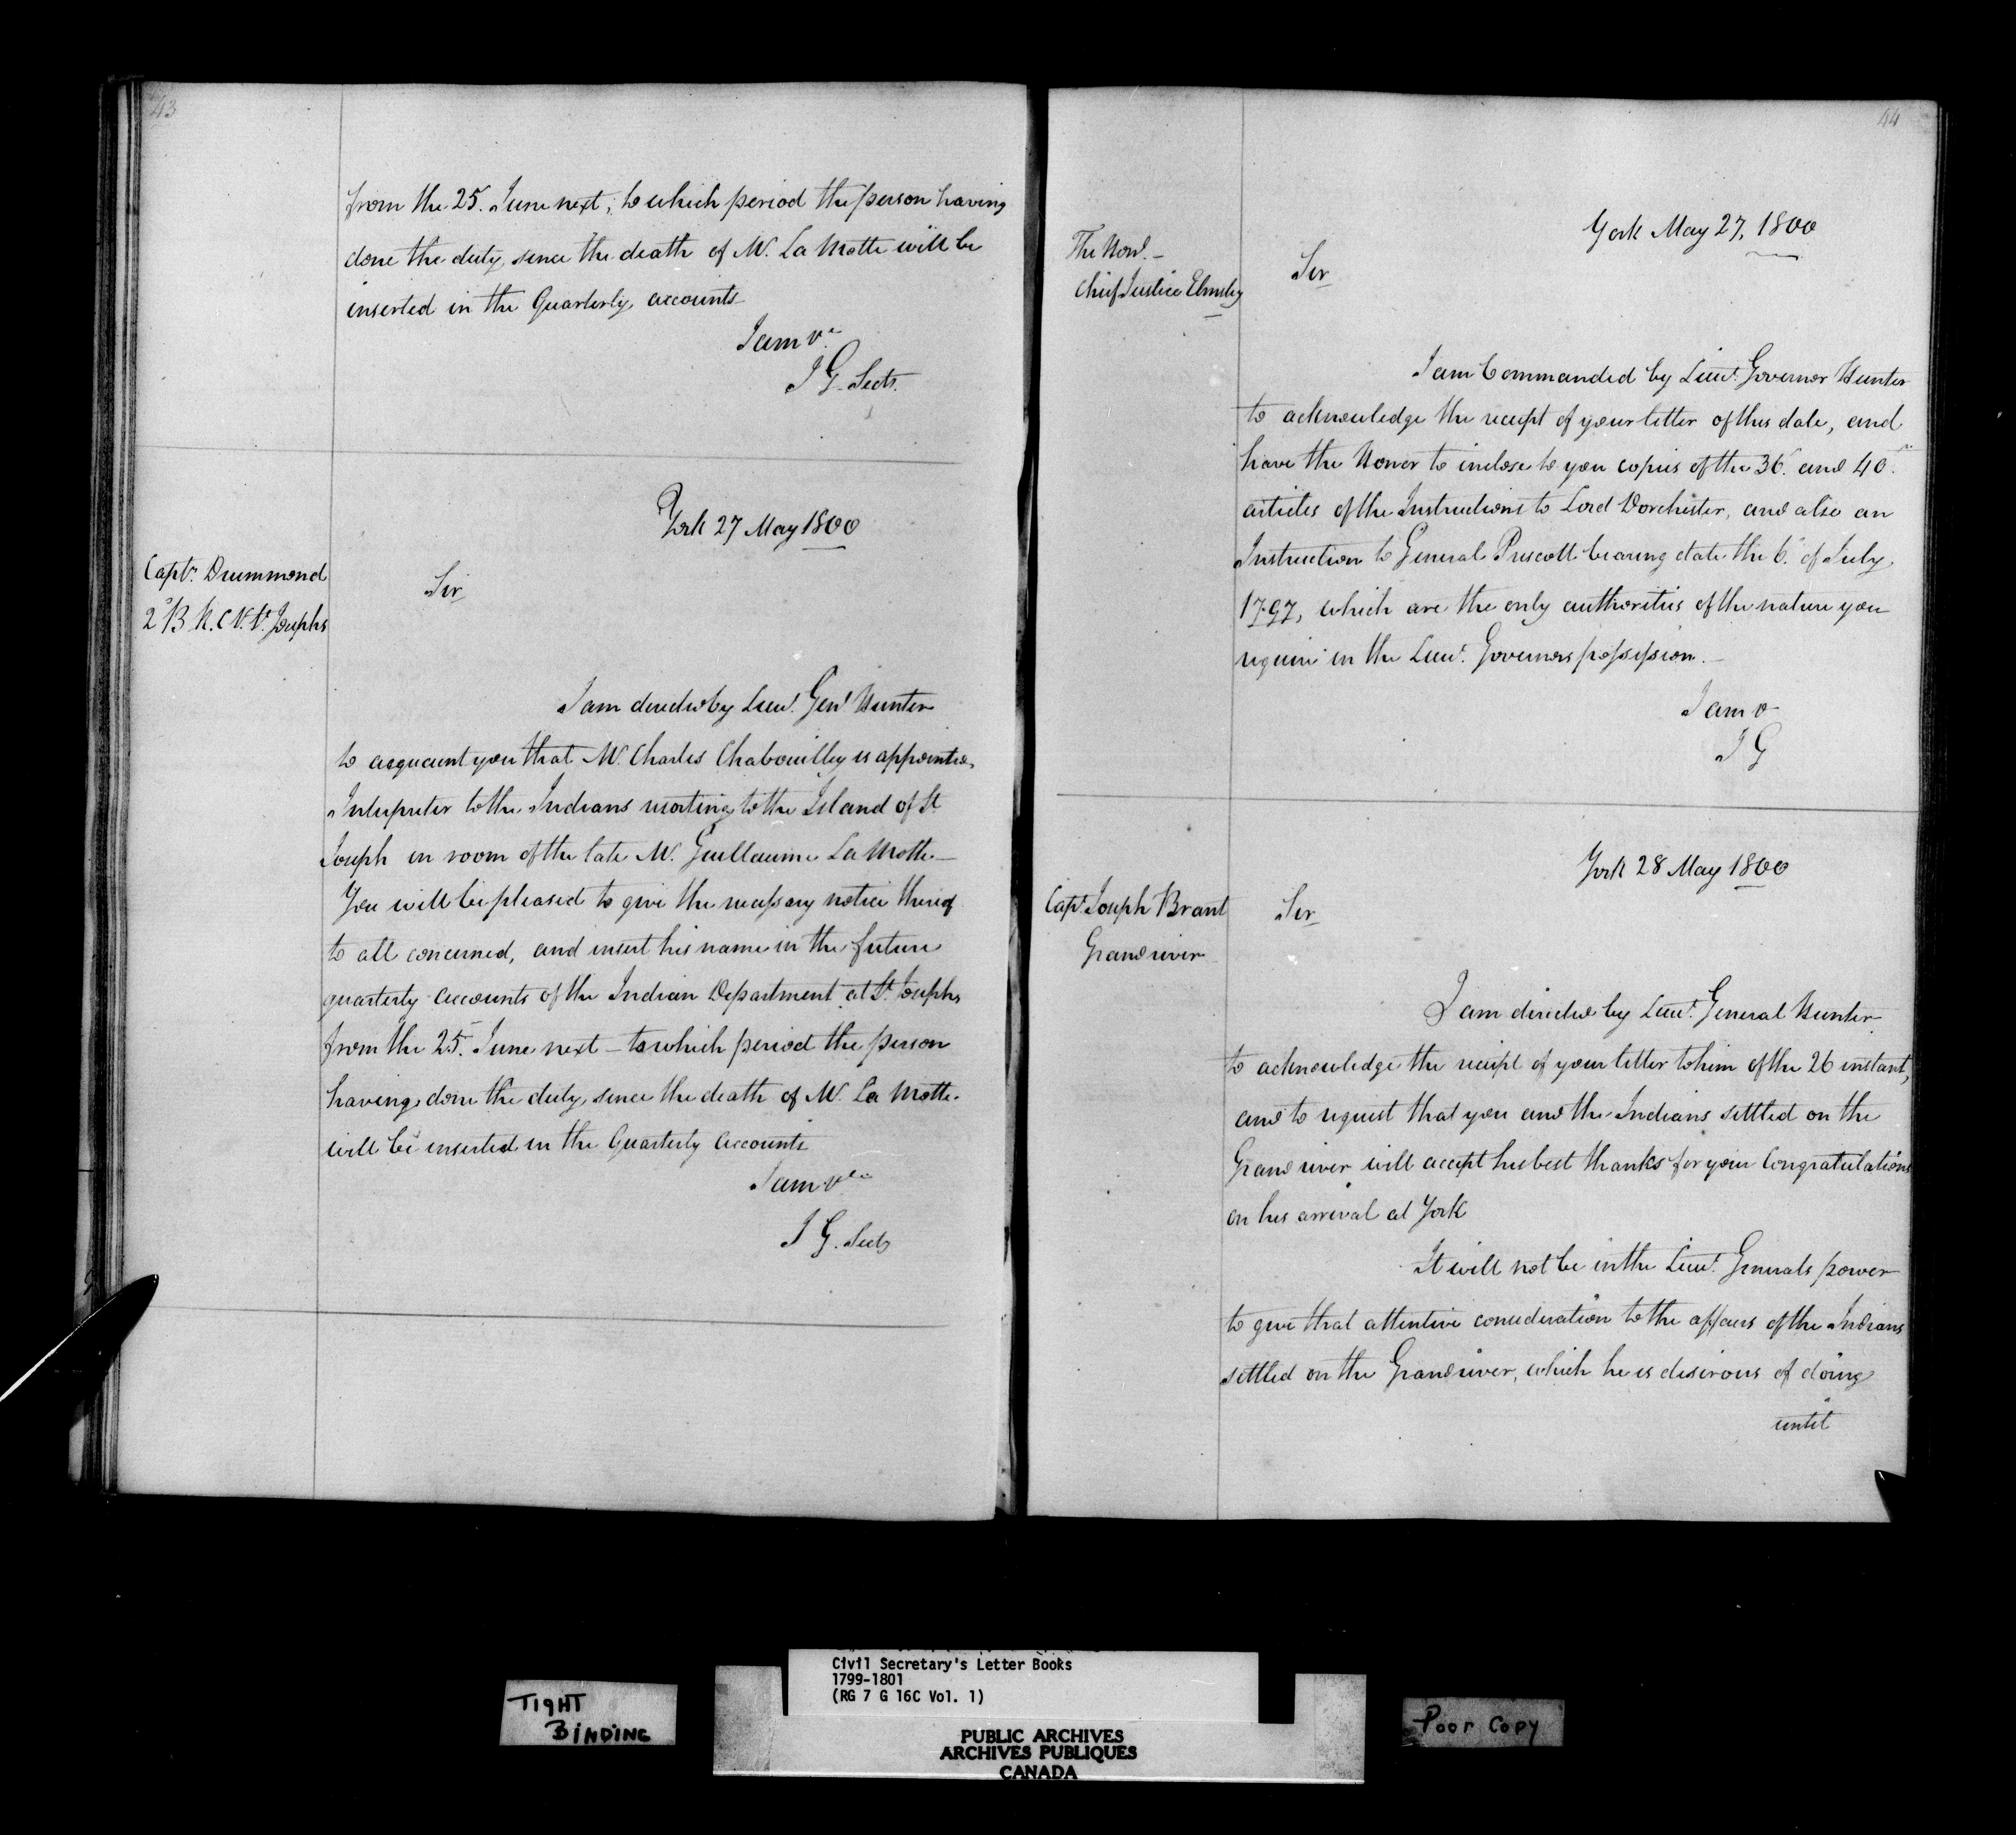 43
from the 25. June next, to which period the person having
done the duty since the death of Mr. La Motte will be
inserted in the Quarterly accounts
I am &c
J G Secty.
York 27 May 1800
Captn. Drummond
2d B R. C V. St. Josephs
Sir
I am directed by Lieut. Genl Hunter
to acquaint you that Mr. Charles Chabouilley is appointed
Interpreter to the Indians resorting to the Island of St
Joseph in room of the late Mr. Guillaume La Motte—
You will be pleased to give the necessary notice thereof
to all concerned, and insert his name in the future
quarterly accounts of the Indian Department at St Josephs
from the 25. June next — to which period the person
having done the duty since the death of Mr. La Motte.
will be inserted in the Quarterly Accounts
I am &c
J G. Secty
44
York May 27, 1800
The Honl. —
Chief Justice Elmsley
Sir
I am Commanded by Lieut. Governor Hunter
to acknowledge the receipt of your letter of this date, and
have the Honor to inclose to you copies of the 36. and 40.
articles of the Instructions to Lord Dorchester, and also an
Instruction to General Prescott bearing date the 6. of July
1797, which are the only authorities of the nature you
require in the Lieut. Governors possession. —
I am &
J G
York 28 May 1800
Capt. Joseph Brant
Grand river
Sir
I am directed by Lieut. General Hunter
to acknowledge the receipt of your letter to him of the 26 instant,
and to request that you and the Indians settled on the
Grand river will accept his best thanks for your Congratulations
on his arrival at York
It will not be in the Lieut. Generals power
to give that attentive consideration to the affairs of the Indians
settled on the Grand river, which he is desirous of doing
until
TIGHT
BINDING
Civil Secretary's Letter Books
1799-1801
(RG 7 G 16C Vol. 1)
PUBLIC ARCHIVES
ARCHIVES PUBLIQUES
CANADA
Poor Copy